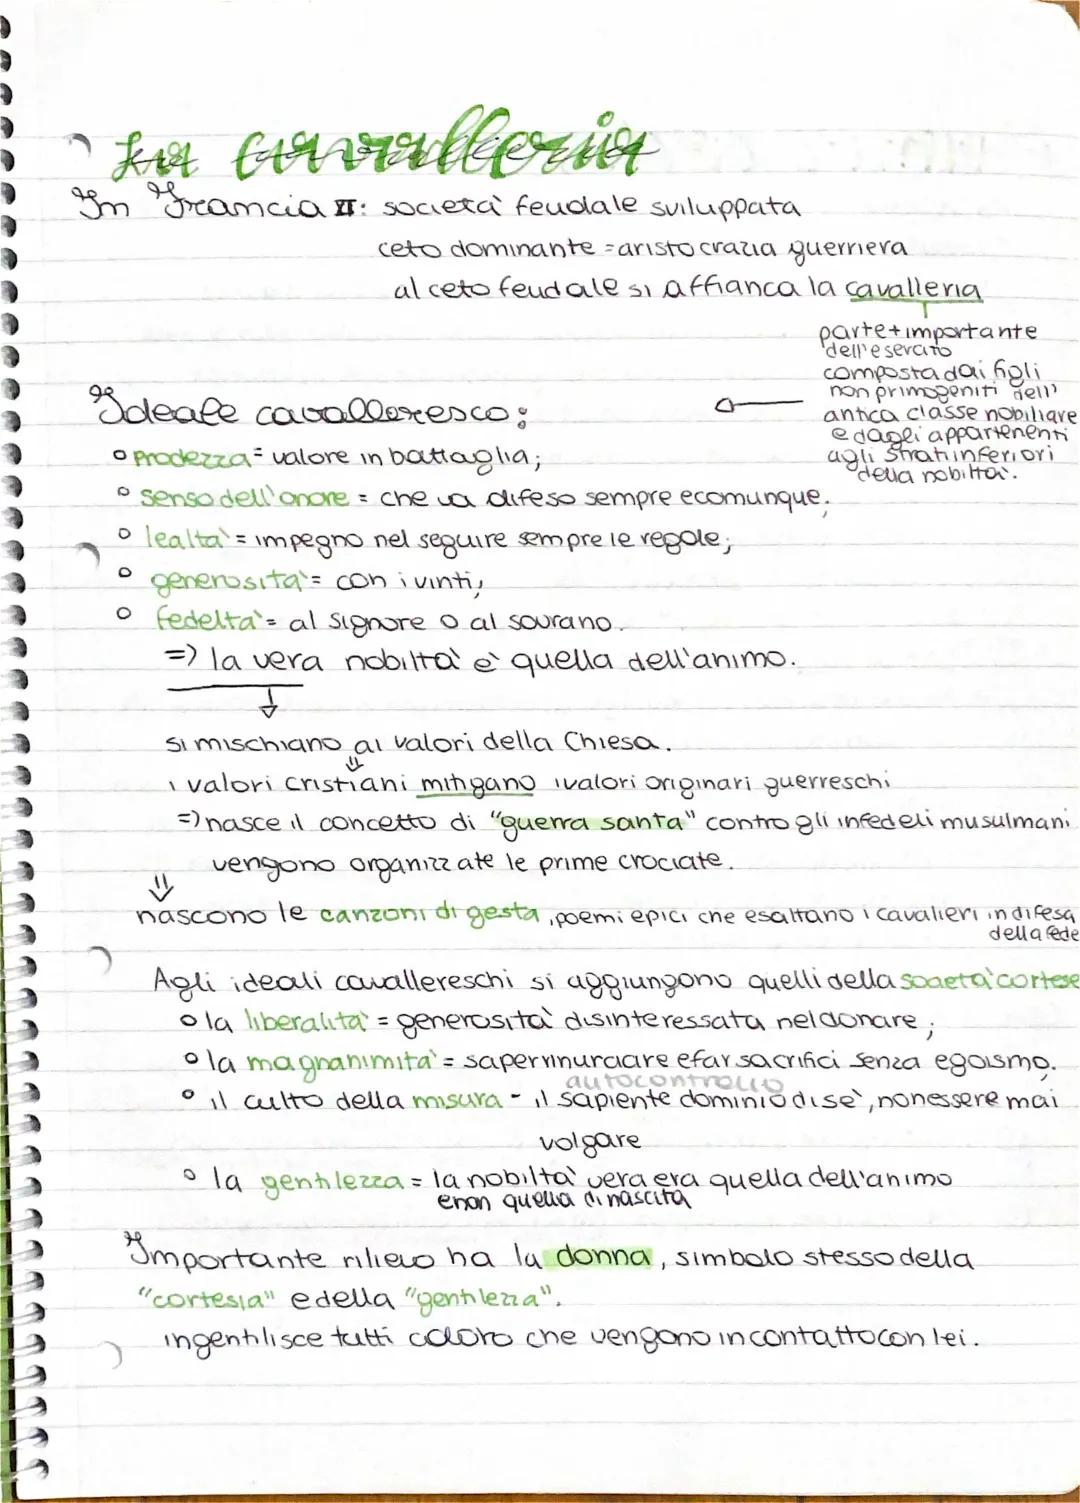 La cavalleria
In Francia XI: società feudale sviluppata
ceto dominante = aristocrazia guerriera
al ceto feudale si affianca la cavalleria
parte + importante
dell'esercito
composta dai figli
non primogeniti dell'
antica classe nobiliare
e dagli appartenenti
agli strati inferiori
della nobiltà.
Ideale cavalleresco:
Prodezza = valore in battaglia;
senso dell'onore = che va difeso sempre e comunque;
lealtà = impegno nel seguire sempre le regole;
generosità = con i vinti;
fedeltà = al signore o al sovrano.
=> la vera nobiltà è quella dell'animo.
si mischiano ai valori della Chiesa.
i valori cristiani mitigano i valori originari guerreschi
=> nasce il concetto di "guerra santa" contro gli infedeli musulmani
vengono organizzate le prime crociate.
nascono le canzoni di gesta, poemi epici che esaltano i cavalieri in difesa
della fede
Agli ideali cavallereschi si aggiungono quelli della società cortese
la liberalità = generosità disinteressata nel donare;
la magnanimità = saper rinunciare e far sacrifici senza egoismo.
autocontrollo
il culto della misura - il sapiente dominio di sè, non essere mai
volgare
la gentilezza = la nobiltà vera era quella dell'animo
e non quella di nascita
Importante rilievo ha la donna, simbolo stesso della
"cortesia" e della "gentilezza".
ingentilisce tutti coloro che vengono in contatto con lei.